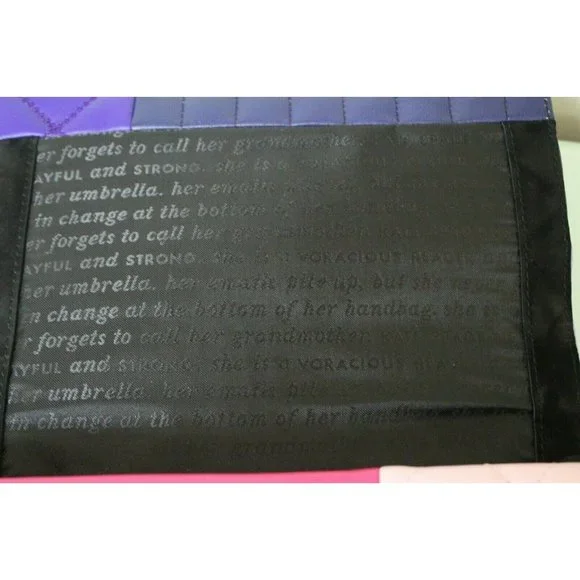 er forgets to call her grandmother.
AYFUL and STRONG. she is a
her umbrella. her emails pile up,
in change at the bottom of her
er forgets to call her grandmother
AYFUL and STRONG. she is a VORACIOUS READER
her umbrella. her emails pile up, but she never
in change at the bottom of her handbag. she
r forgets to call her grandmother.
AYFUL and STRONG. she is a VORACIOUS READ
er umbrella. her emails pile
in change at the bottom of her handbag
grandmo